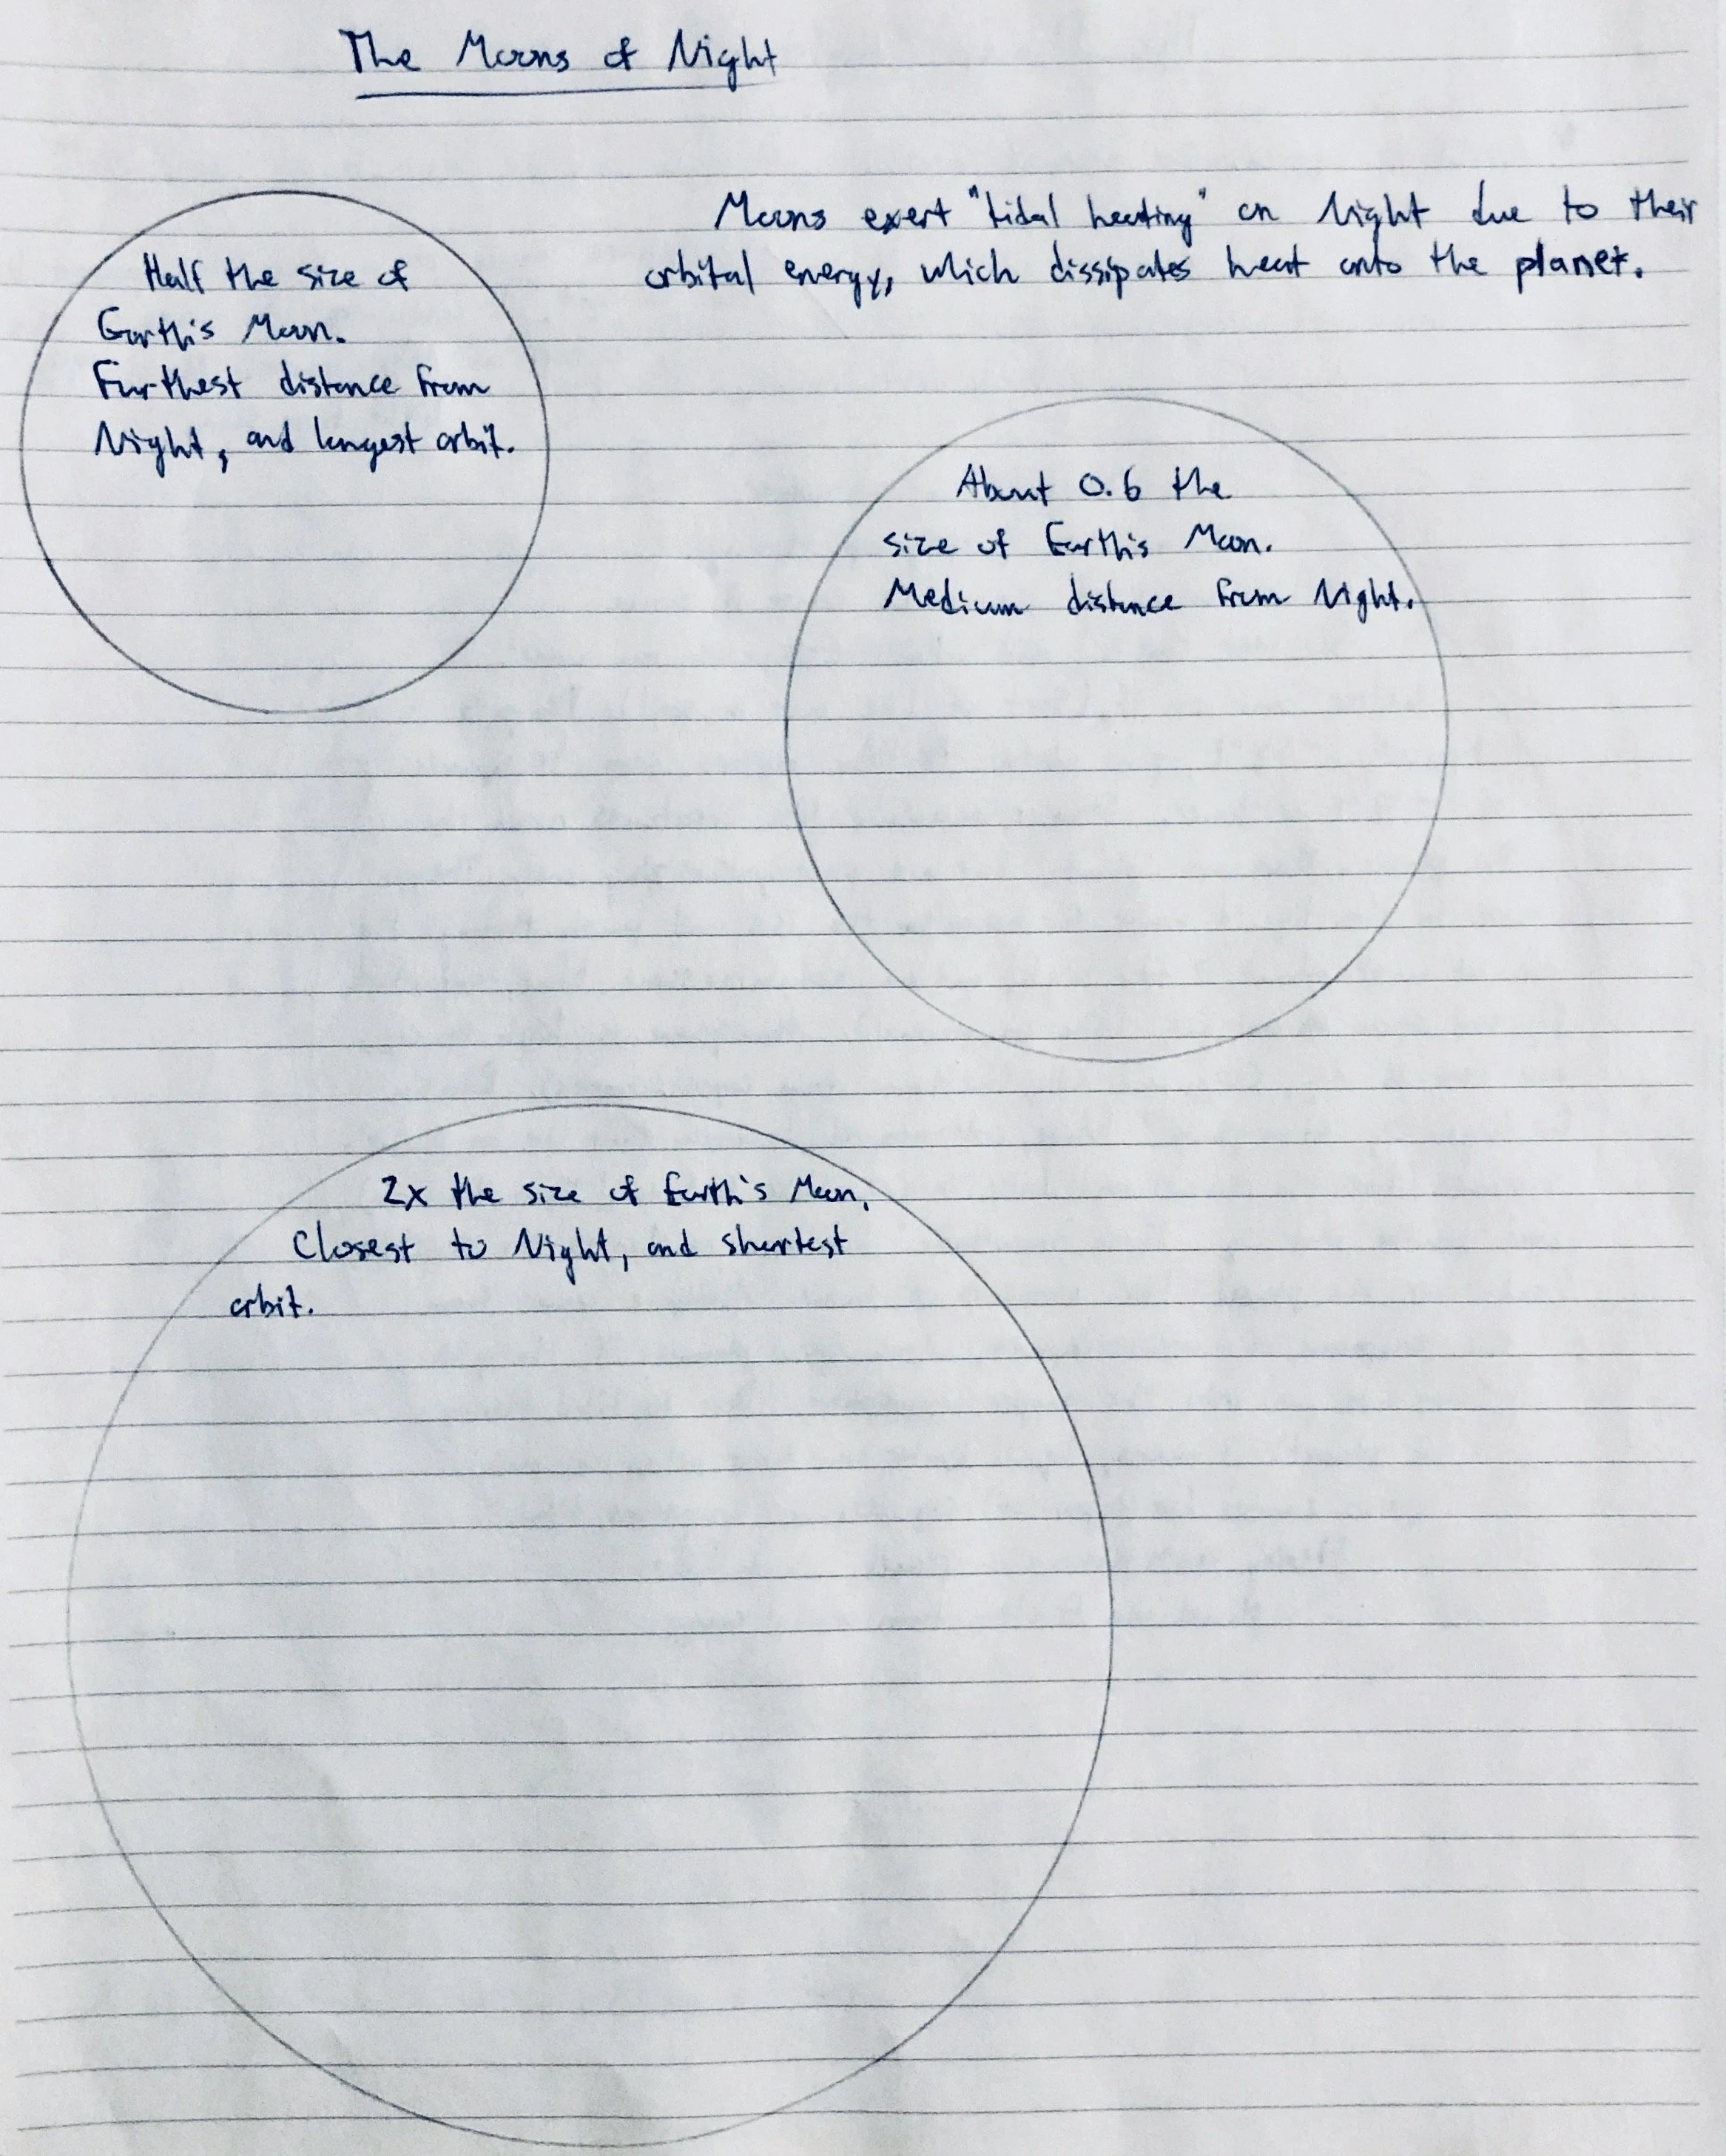 The Moons of Night
Moons exert "tidal heating" on Night due to their
orbital energy, which dissipates heat onto the planet.
Half the size of
Earth's Moon.
Furthest distance from
Night, and longest orbit.
About 0.6 the
size of Earth's Moon.
Medium distance from Night.
2x the size of Earth's Moon.
Closest to Night, and shortest
orbit.